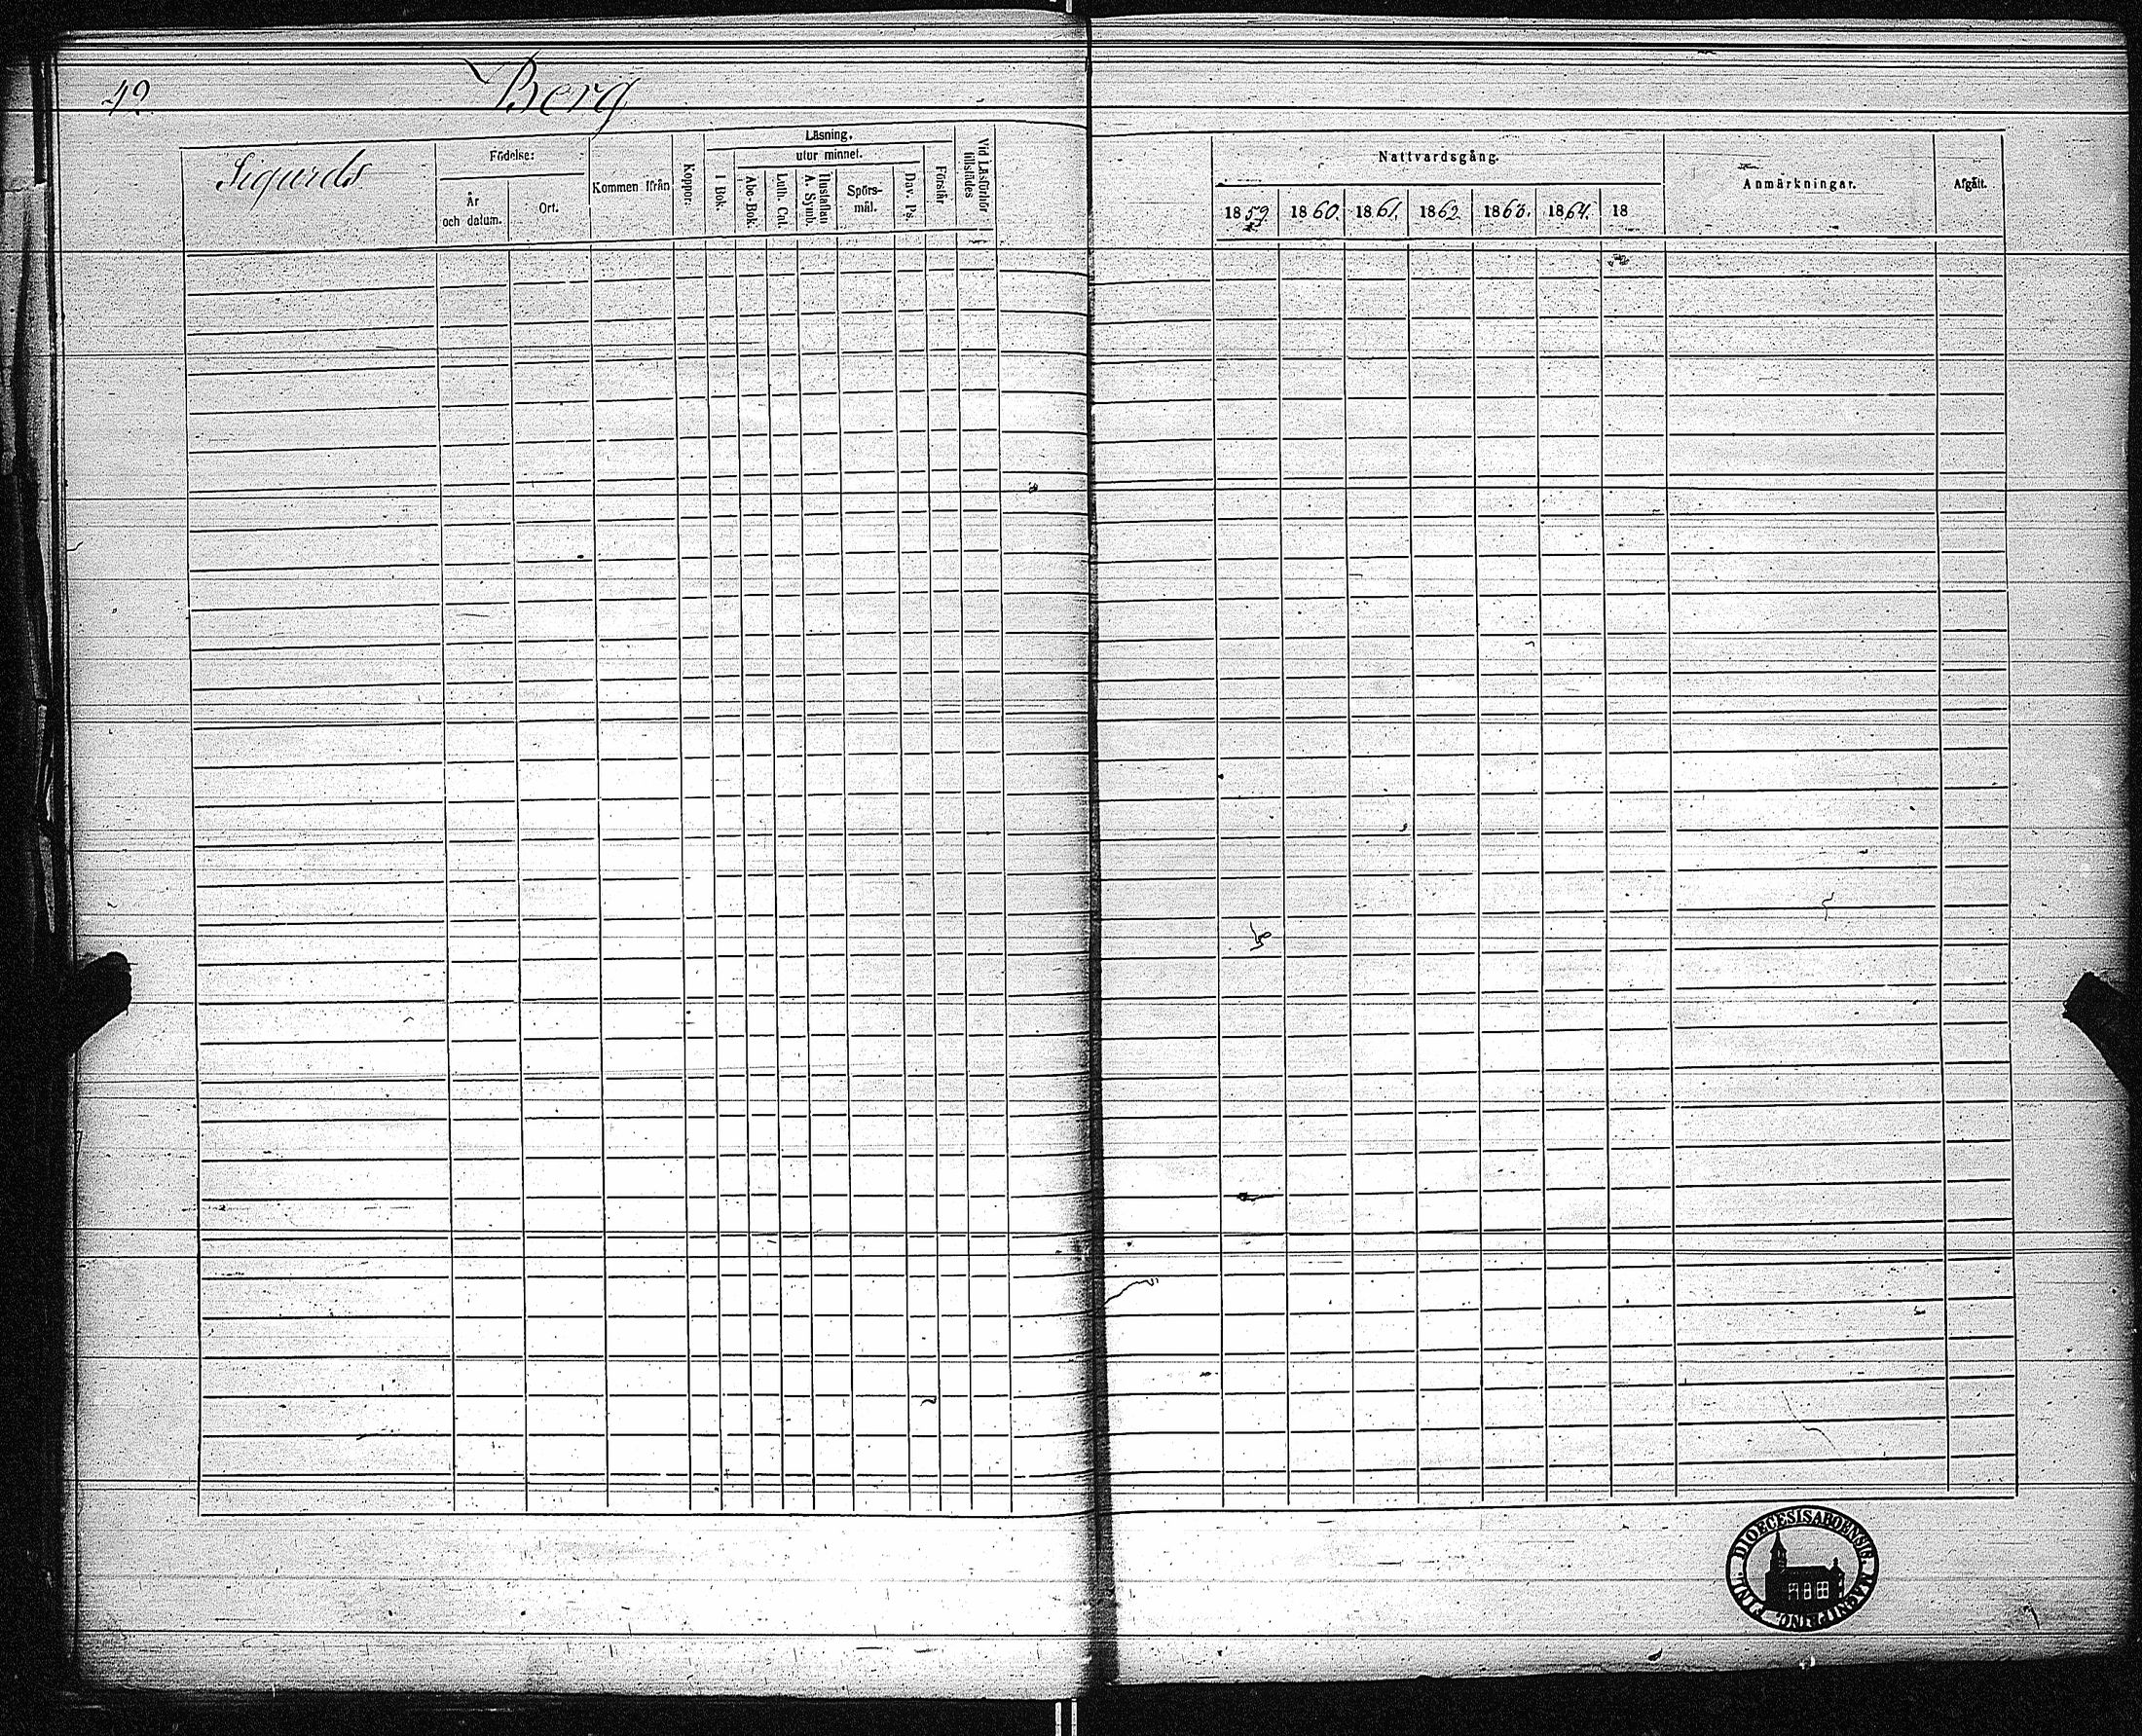 42.
Berg
Sigurds
Födelse:
År
och datum.
Ort.
Kommen ifrån
Koppor:
Läsning.
utur minnet.
I Bok.
Abc-Bok.
Luth. Cat.
Hustaflan
A. Symb.
Spörs-
mål.
Dav. Ps.
Förstår
Vid Läsförhör
tillstädes
Nattvardsgång.
1859. 1860. 1861. 1862. 1863. 1864. 18
Anmärkningar.
Afgått.
DIOECESIS ABOENSIS. MAGNI PRINC. FINL.